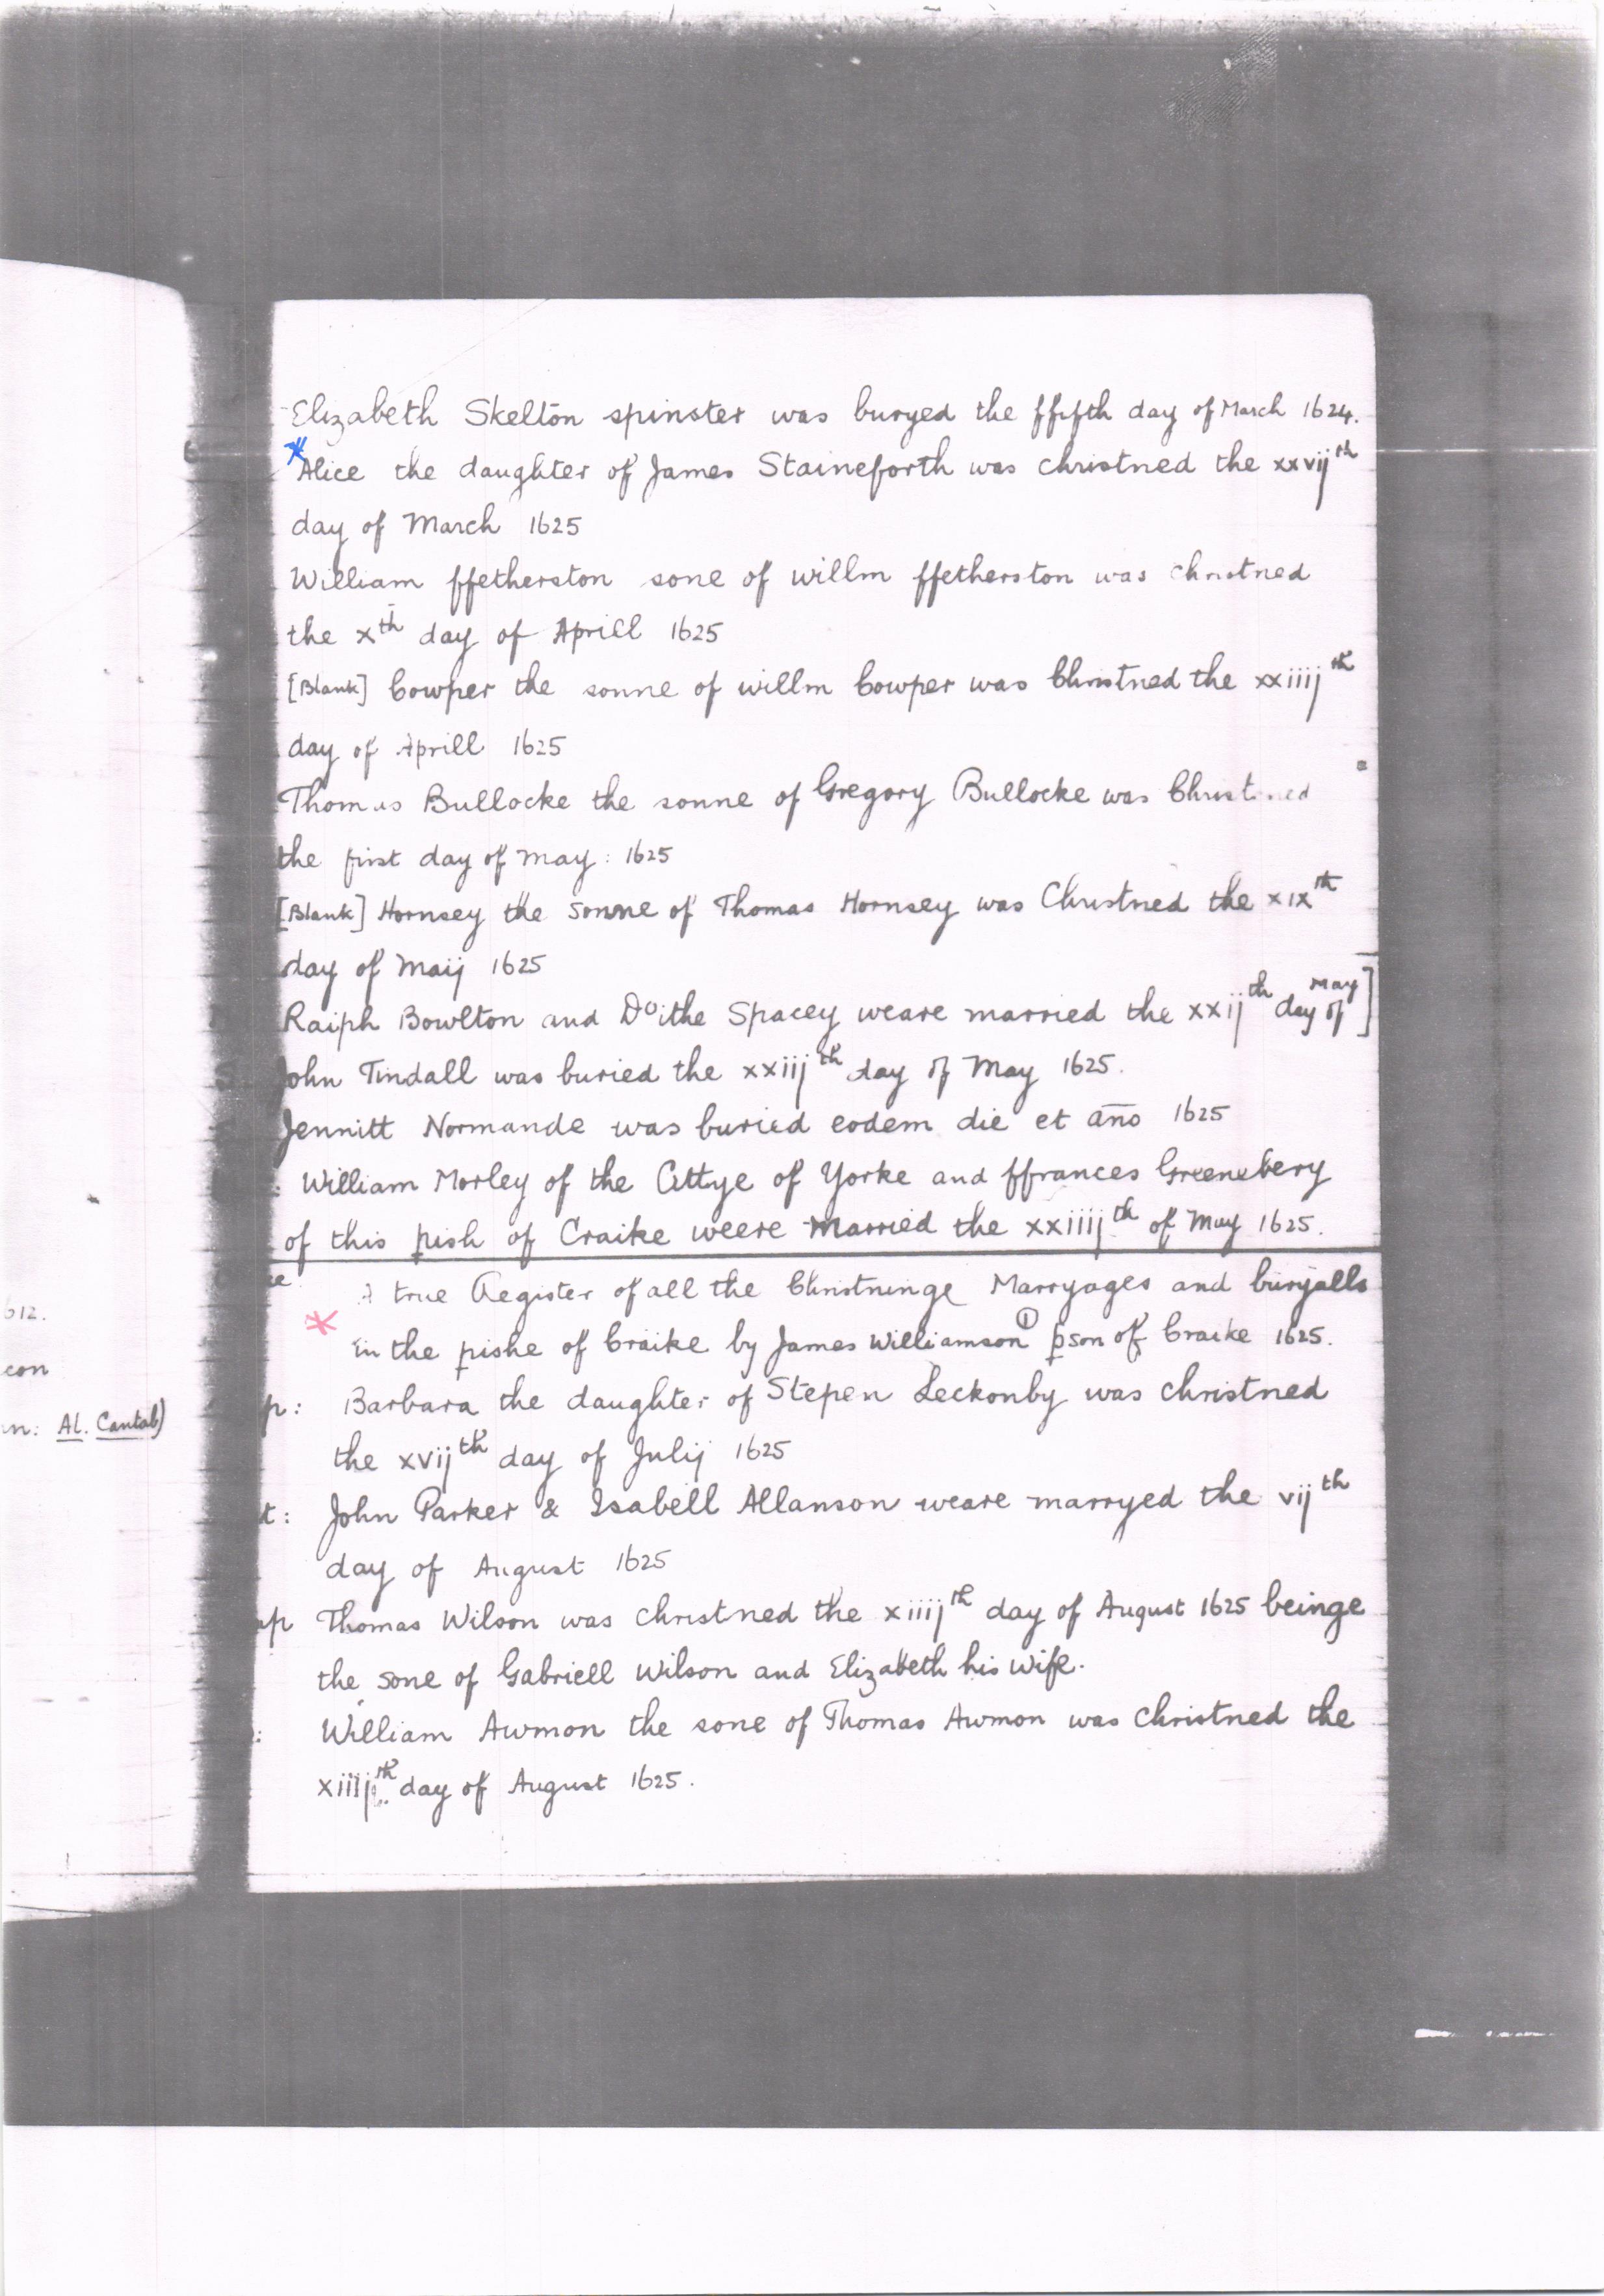 Elizabeth Skelton spinster was buryed the ffifth day of March 1624.
*Alice the daughter of James Staineforth was christned the xxvijth
day of March 1625
William ffetherston sone of willm ffetherston was christned
the xth day of Aprill 1625
[Blank] Cowper the sonne of willm Cowper was Christned the xxiiijth
day of Aprill 1625
Thomas Bullocke the sonne of Gregory Bullocke was Christned
the first day of may : 1625
[Blank] Hornsey the sonne of Thomas Hornsey was Christned the xixth
day of Maij 1625
Raiph Bowlton and Doithe Spacey weare married the xxijth day of May]
John Tindall was buried the xxiijth day of May 1625.
Jennitt Normande was buried eodem die et año 1625
: William Morley of the Cittye of Yorke and ffrances Greenebery
of this pish of Craike weere married the xxiiijth of May 1625.
A true Register of all the Christninge Marryages and buryalls
* in the pishe of Craike by James Williamson① pson of Craike 1625.
612.
con
p: Barbara the daughter of Stepen Leckonby was christned
n: Al. Cantab)
the xvijth day of Julij 1625
t: John Parker & Isabell Allanson weare marryed the vijth
day of August 1625
ap Thomas Wilson was christned the xiiijth day of August 1625 beinge
the sone of Gabriell Wilson and Elizabeth his wife.
: William Awmon the sone of Thomas Awmon was christned the
xiiijth day of August 1625.